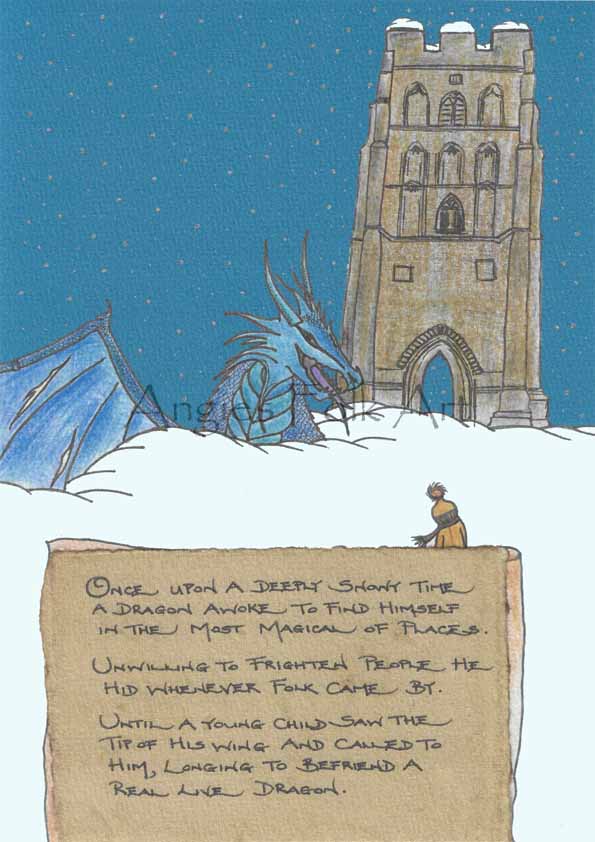 Angies Folk Art
Once upon a deeply snowy time
a dragon awoke to find himself
in the most magical of places.
Unwilling to frighten people he
hid whenever folk came by.
Until a young child saw the
tip of his wing and called to
him, longing to befriend a
real live dragon.